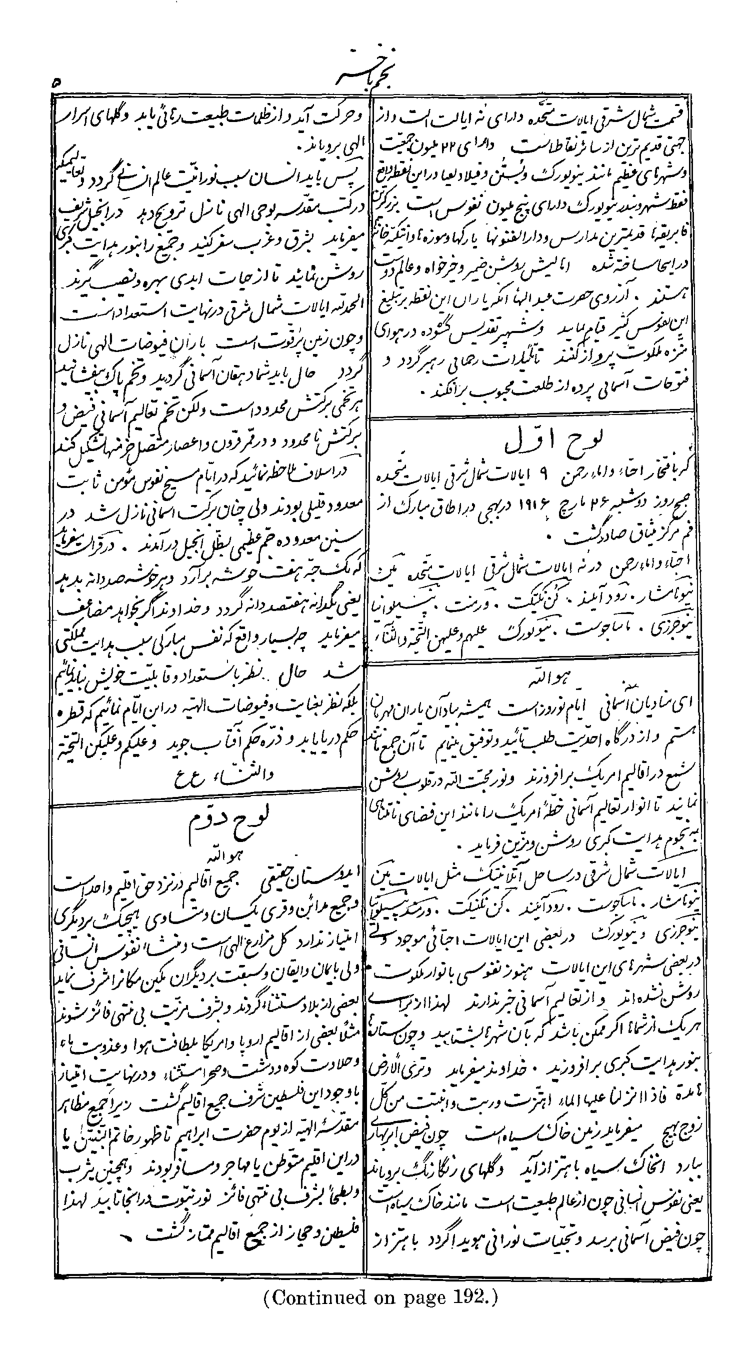 نجم باختر
۵
قسمت شمال شرقی ایالات متحده دارای نه ایالت است و از
جهتی قدیم‌ترین از سایر نقاط است دارای ۲۲ میلیون جمعیت
و شهرهای عظیم مانند نیویورک و بستن و فیلادلفیا در این نقطه واقع
فقط شهر و بندر نیویورک دارای پنج ملیون نفوس است بزرگترین
فابریقه‌ها قدیمترین مدارس و دار الفنونها پارکها و موزه‌ها و
در اینجا ساخته شده اهالیش روشن ضمیر و خیرخواه و عالم دوست
هستند . آرزوی حضرت عبد البهآ آنکه یاران این نقطه بر تبلیغ
این نفوس کثیر قیام نمایند و شهپر تقدیس گشوده در هوای
منزه ملکوت پرواز کنند تائیدات رحمانی رهبر گردد و
فتوحات آسمانی پرده از طلعت محبوب برافکند .
لوح اوّل
که بافتخار احبّاء و اماء رحمن ۹ ایالات شمال شرقی ایالات متحده
صبح روز دوشنبه ۲۶ مارچ ۱۹۱۶ در بهجی در اطاق مبارک از
فم مرکز میثاق صادر گشت .
احبّاء و اماء رحمن در نه ایالات شمال شرقی ایالات متحده مین
نیوهامشار . رود آیلند . کن تکتیکت . ورمنت . پنسیلوانیا
نیوجرزی . ماساچوست . نیویورک علیهم و علیهن التحیة و الثناء
هو اللّه
ای منادیان آسمانی ایام نوروز است همیشه بیاد آن یاران مهربان
هستم و از درگاه احدیت طلب تائید و توفیق مینمایم تا آن جمع مانند
شمع در اقالیم امریک برافروزند و نور محبت الله در قلوب روشن
نمایند تا انوار تعالیم آسمانی خطّهٔ امریک را مانند این فضای نامتناهی
به نجوم هدایت کبری روشن و مزین فرماید .
ایالات شمال شرقی در ساحل آتلانتیک مثل ایالات مین
نیوهامشار . ماساچوست . رود آیلند . کن تکتیکت . ورمنت پنسیلوانیا
نیوجرزی و نیویورک در بعضی این ایالات احبّائی موجود ولی
در بعضی شهرهای این ایالات هنوز نفوسی بانوار ملکوت
روشن نشده‌اند و از تعالیم آسمانی خبر ندارند لهذا از برای
هر یک از شما اگر ممکن باشد که بآن شهرها بشتابید و چون ستاره‌ها
بنور هدایت کبری برافروزید . خداوند میفرماید و تری الارض
هامدة فاذا انزلنا علیها الماء اهتزت و ربت و انبتت من کل
زوج بهیج میفرماید زمین خاک سیاه است چون فیض ابر بهاری
ببارد آن خاک سیاه باهتزاز آید و گلهای رنگارنگ برویاند
یعنی نفوس انسانی چون از عالم طبیعت است مانند خاک سیاه است
چون فیض آسمانی برسد و تجلیات نورانی هویدا گردد باهتزاز
و حرکت آید و از ظلمات طبیعت رهائی یابد و گلهای اسرار
الهی برویاند .
پس باید انسان سبب نورانیت عالم انسانی گردد و تعالیمیکه
در کتب مقدسه بوحی الهی نازل ترویج دهد در انجیل شریف
میفرماید بشرق و غرب سفر کنید و جمیع را بنور هدایت کبری
روشن نمائید تا از حیات ابدی بهره و نصیب گیرند
الحمد لله ایالات شمال شرقی در نهایت استعداد است
و چون زمین پر قوت است باران فیوضات الهی نازل
گردد حال باید شما دهقان آسمانی گردید و تخم پاک بیفشانید
هر تخمی برکتش محدود است ولکن تخم تعالیم آسمانی فیض و
برکتش نامحدود و در ممر قرون و اعصار متصل خرمنها تشکیل کند
در اسلاف ملاحظه نمائید که در ایام مسیح نفوس مؤمن ثابت
معدود قلیلی بودند ولی چنان برکت آسمانی نازل شد در
سنین معدوده جم عظیمی بظل انجیل درآمدند . در قرآن میفرماید
که یک حبه هفت خوشه برآرد و هر خوشه صد دانه بدهد
یعنی یکدانه هفتصد دانه گردد و خداوند اگر بخواهد مضاعف
میفرماید چه بسیار واقع که نفس مبارکی سبب هدایت مملکتی
شد حال . نظر باستعداد و قابلیت خویش نباید نمائیم
بلکه نظر بعنایت و فیوضات الهیّه در این ایام نمائیم که قطره
حکم دریا یابد و ذره حکم آفتاب جوید و علیکم و علیکن التحیّة
و الثناء ع ع
لوح دوّم
هو اللّه
ای دوستان حقیقی جمیع اقالیم در نزد حق اقلیم واحد است
و جمیع مدائن و قری یکسان و متساوی هیچیک بر دیگری
امتیاز ندارد کل مزارع الهی است و منشاء نفوس انسانی
ولی بایمان و ایقان و سبقت بر دیگران مکین مکانرا شرف نماید
بعضی از بلاد مستثناء گردند و بشرف و مزیّت بی منتهی فائز شوند
مثلاً بعضی از اقالیم اروپا و امریکا بلطافت هوا و عذوبت ماء
و حلاوت کوه و دشت و صحرا مستثناء و در نهایت امتیاز
با وجود این فلسطین شرف جمیع اقالیم گشت زیرا جمیع مظاهر
مقدّسهٔ الهیّه از یوم حضرت ابراهیم تا ظهور خاتم النبیّین یا
در این اقلیم متوطن یا مهاجر و مسافر بودند و همچنین یثرب
و بطحا بشرف بی منتهی فائز نور نبوّت در آنجا تابید لهذا
فلسطین و حجاز از جمیع اقالیم ممتاز گشت
(Continued on page 192.)